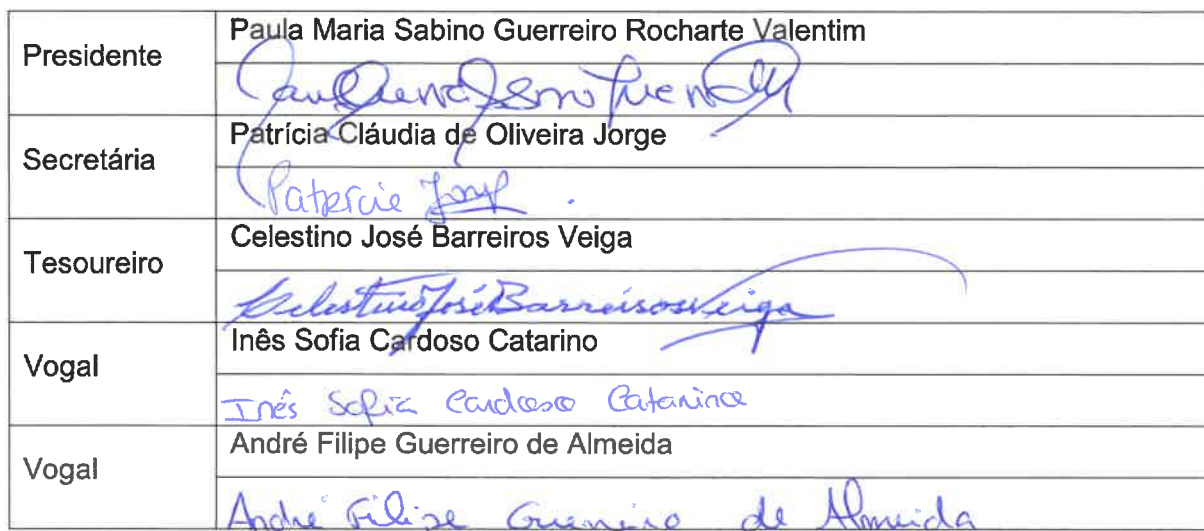 Presidente
Paula Maria Sabino Guerreiro Rocharte Valentim
Secretária
Patrícia Cláudia de Oliveira Jorge
Patrícia Jorge
Tesoureiro
Celestino José Barreiros Veiga
Celestino José Barreiros Veiga
Vogal
Inês Sofia Cardoso Catarino
Inês Sofia Cardoso Catarino
Vogal
André Filipe Guerreiro de Almeida
André Filipe Guerreiro de Almeida